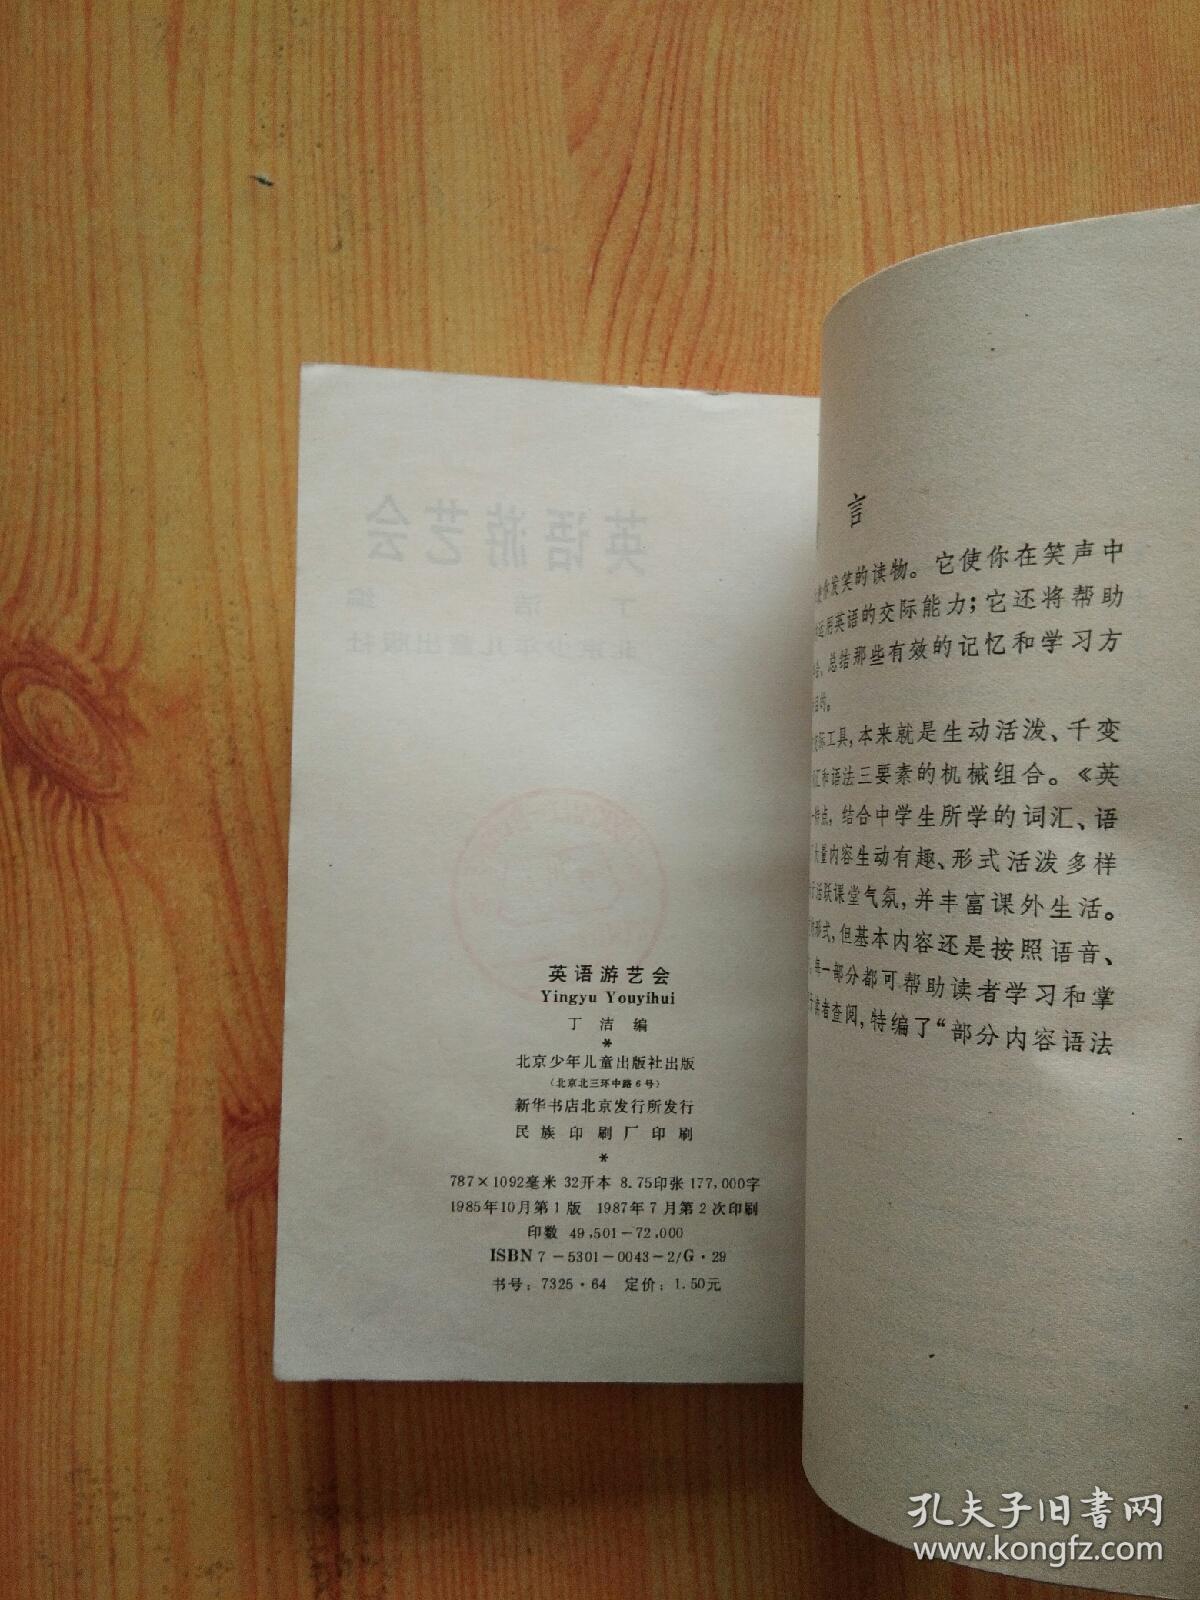 英语游艺会
Yingyu Youyihui
丁洁编
*
北京少年儿童出版社出版
（北京北三环中路6号）
新华书店北京发行所发行
民族印刷厂印刷
*
787×1092毫米 32开本 8.75印张 177,000字
1985年10月第1版 1987年7月第2次印刷
印数 49,501—72,000
ISBN 7-5301-0043-2/G·29
书号：7325·64 定价：1.50元
言
你发笑的读物。它使你在笑声中
运用英语的交际能力；它还将帮助
总结那些有效的记忆和学习方
目的。
际工具，本来就是生动活泼、千变
汇和语法三要素的机械组合。《英
特点，结合中学生所学的词汇、语
大量内容生动有趣、形式活泼多样
活跃课堂气氛，并丰富课外生活。
形式，但基本内容还是按照语音、
每一部分都可帮助读者学习和掌
读者查阅，特编了“部分内容语法
孔夫子旧书网
www.kongfz.com